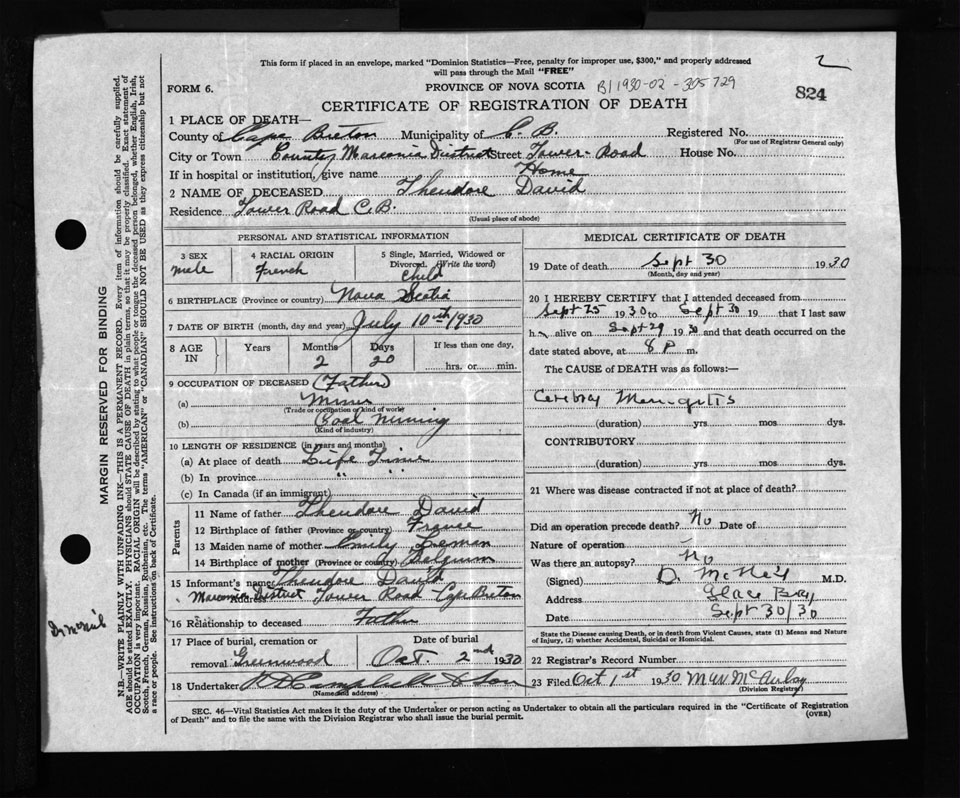 This form if placed in an envelope, marked "Dominion Statistics—Free, penalty for improper use, $300," and properly addressed
will pass through the Mail "FREE"
2
FORM 6.
PROVINCE OF NOVA SCOTIA B1 1930-02-305729
824
CERTIFICATE OF REGISTRATION OF DEATH
1 PLACE OF DEATH—
County of Cape Breton Municipality of C. B. Registered No.
(For use of Registrar General only)
City or Town County Marconia District Street Tower Road House No.
If in hospital or institution, give name Home
2 NAME OF DECEASED Theodore David
Residence Tower Road C.B.
(Usual place of abode)
PERSONAL AND STATISTICAL INFORMATION
3 SEX male
4 RACIAL ORIGIN French
5 Single, Married, Widowed or
Divorced. (Write the word) Child
6 BIRTHPLACE (Province or country) Nova Scotia
7 DATE OF BIRTH (month, day and year) July 10th 1930
8 AGE IN
Years Months 2 Days 20
If less than one day,
hrs. or min.
9 OCCUPATION OF DECEASED (Father)
(a) Miner
(Trade or occupation or kind of work)
(b) Coal Mining
(Kind of industry)
10 LENGTH OF RESIDENCE (in years and months)
(a) At place of death Life Time
(b) In province " "
(c) In Canada (if an immigrant)
Parents
11 Name of father Theodore David
12 Birthplace of father (Province or country) France
13 Maiden name of mother Emily Leman
14 Birthplace of mother (Province or country) Belgium
15 Informant's name Theodore David
Address Marconia District Tower Road Cape Breton
16 Relationship to deceased Father
17 Place of burial, cremation or Date of burial
removal Greenwood Oct. 2nd 1930
18 Undertaker Campbell & Son
(Name and address)
MEDICAL CERTIFICATE OF DEATH
19 Date of death Sept 30 1930
(Month, day and year)
20 I HEREBY CERTIFY that I attended deceased from
Sept 25 1930 to Sept 30 19 that I last saw
h alive on Sept 29 1930 and that death occurred on the
date stated above, at 8 P m.
The CAUSE of DEATH was as follows:—
(duration) yrs mos dys.
CONTRIBUTORY
(duration) yrs mos dys.
21 Where was disease contracted if not at place of death?
Did an operation precede death? No Date of
Nature of operation
Was there an autopsy? No
(Signed) D. McNeil M.D.
Address Glace Bay
Date Sept 30/30
State the Disease causing Death, or in death from Violent Causes, state (1) Means and Nature
of Injury, (2) whether Accidental, Suicidal or Homicidal.
22 Registrar's Record Number
23 Filed Oct 1st 1930
(Division Registrar)
SEC. 46—Vital Statistics Act makes it the duty of the Undertaker or person acting as Undertaker to obtain all the particulars required in the "Certificate of Registration
of Death" and to file the same with the Division Registrar who shall issue the burial permit.
(OVER)
MARGIN RESERVED FOR BINDING
N.B.—WRITE PLAINLY WITH UNFADING INK—THIS IS A PERMANENT RECORD. Every item of information should be carefully supplied.
AGE should be stated EXACTLY. PHYSICIANS should STATE CAUSE OF DEATH in plain terms, so that it may be properly classified. Exact statement of
OCCUPATION is very important. RACIAL ORIGIN will be described by stating to what people or tongue the deceased person belonged, whether English, Irish,
Scotch, French, German, Russian, Ruthenian, etc. The terms "AMERICAN" or "CANADIAN" SHOULD NOT BE USED as they express citizenship but not
a race or people. See instructions on back of Certificate.
Dr McNeil